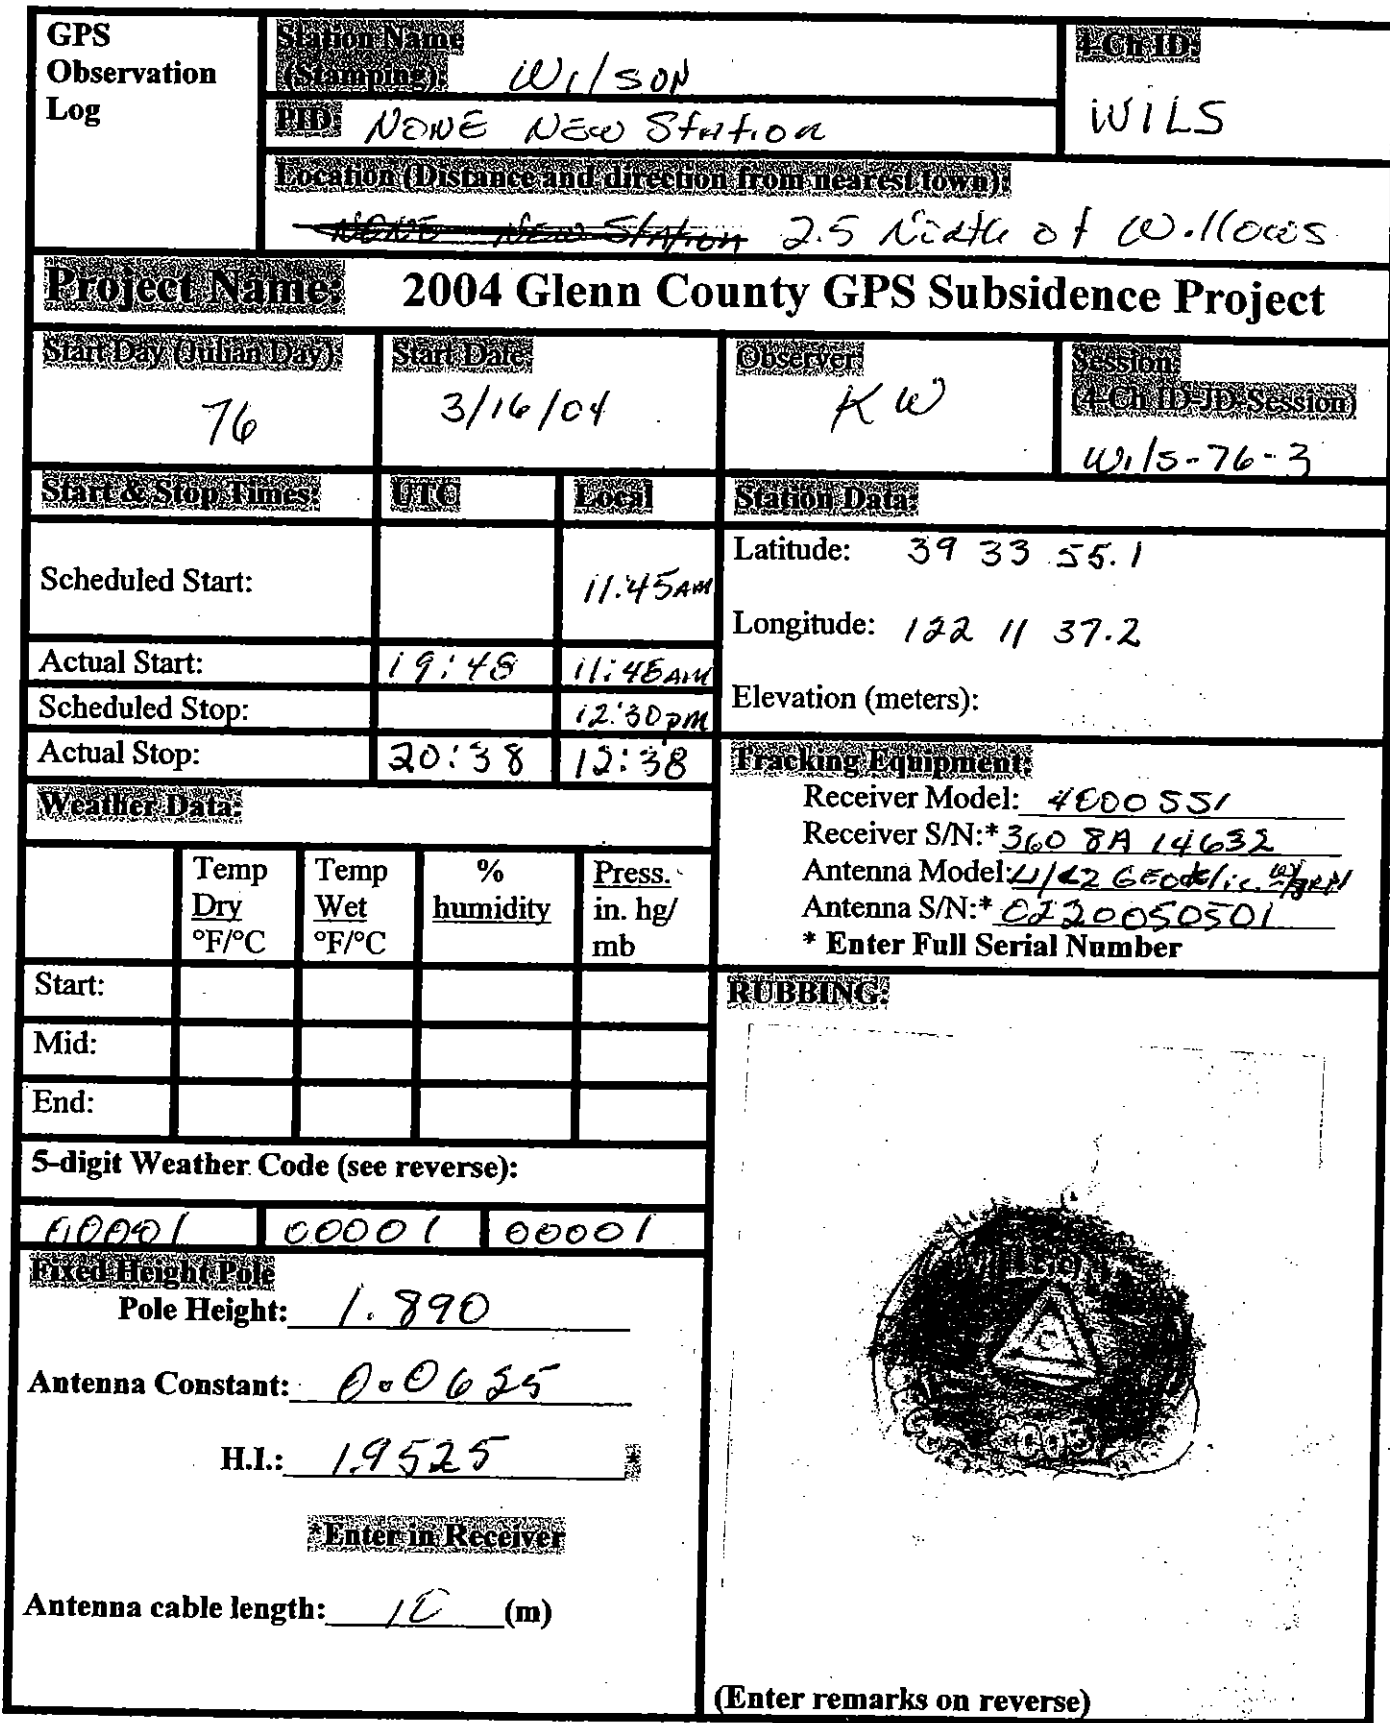 GPS
Observation
Log
Station Name
(Stamping): Wilson
4-Ch ID:
WILS
PID: NONE NEW Station
Location (Distance and direction from nearest town):
NONE New Station 2.5 North of Willows
Project Name: 2004 Glenn County GPS Subsidence Project
Start Day (Julian Day):
76
Start Date
3/16/04
Observer:
KW
Session:
(4-Ch ID-JD-Session)
Wils-76-3
Start & Stop Times: UTC Local
Scheduled Start: 11:45AM
Actual Start: 19:48 11:48AM
Scheduled Stop: 12:30pm
Actual Stop: 20:38 12:38
Station Data:
Latitude: 39 33 55.1
Longitude: 122 11 37.2
Elevation (meters):
Tracking Equipment:
Receiver Model: 4000SSI
Receiver S/N:* 3608A 14632
Antenna Model: L1/L2 GEOdetic
Antenna S/N:* 0220050501
* Enter Full Serial Number
Weather Data:
Temp
Dry
°F/°C
Temp
Wet
°F/°C
%
humidity
Press.
in. hg/
mb
Start:
Mid:
End:
5-digit Weather Code (see reverse):
00001 00001 00001
Fixed Height Pole
Pole Height: 1.890
Antenna Constant: 0.0625
H.I.: 1.9525 *
*Enter in Receiver
Antenna cable length: 10 (m)
RUBBING:
(Enter remarks on reverse)